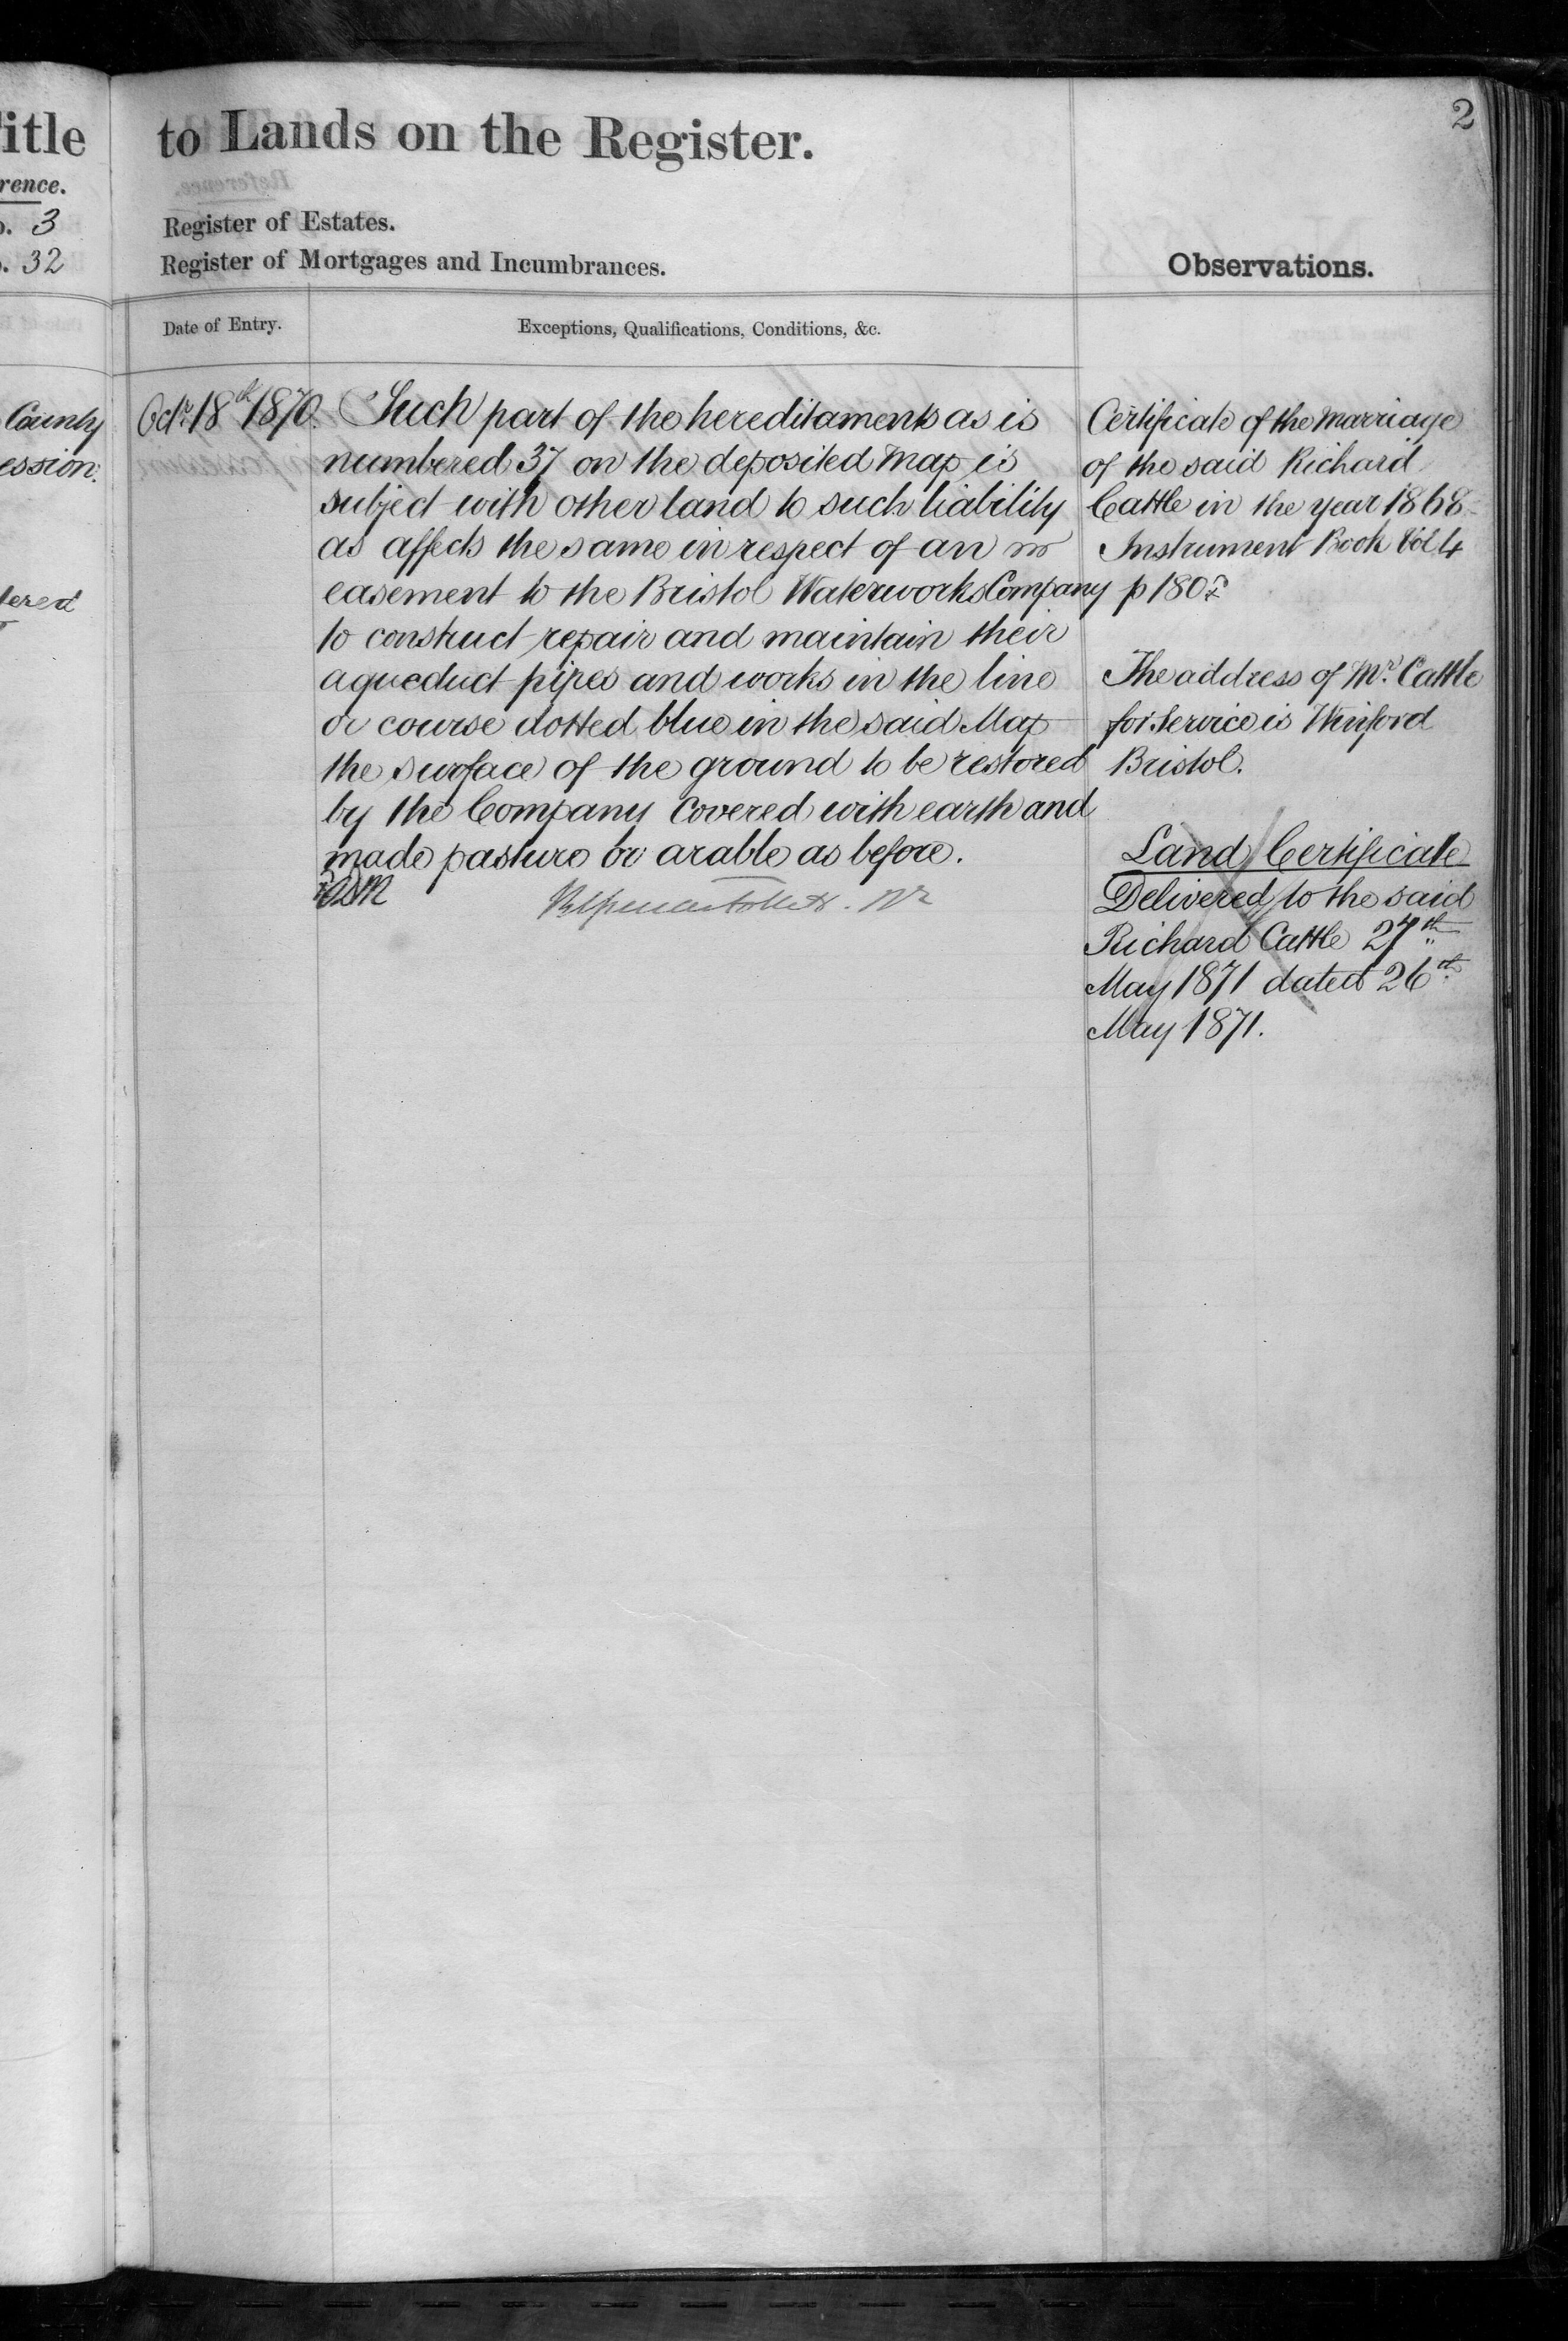 2
to Lands on the Register.
Register of Estates.
Register of Mortgages and Incumbrances.
Observations.
3
32
County
Date of Entry.
Exceptions, Qualifications, Conditions, &c.
Octr. 18th 1870.
Such part of the hereditaments as is
numbered 37 on the deposited Map is
subject with other land to such liability
as affects the same in respect of an
easement to the Bristol Waterworks Company
to construct repair and maintain their
aqueduct pipes and works in the line
or course dotted blue in the said Map
the surface of the ground to be restored
by the Company covered with earth and
made pasture or arable as before.
Certificate of the Marriage
of the said Richard
Cattle in the year 1868
Instrument Book Vol 4
p 180
The address of Mr. Cattle
for Service is Winford
Bristol.
Land Certificate
Delivered to the said
Richard Cattle 27th
May 1871 dated 26th
May 1871.